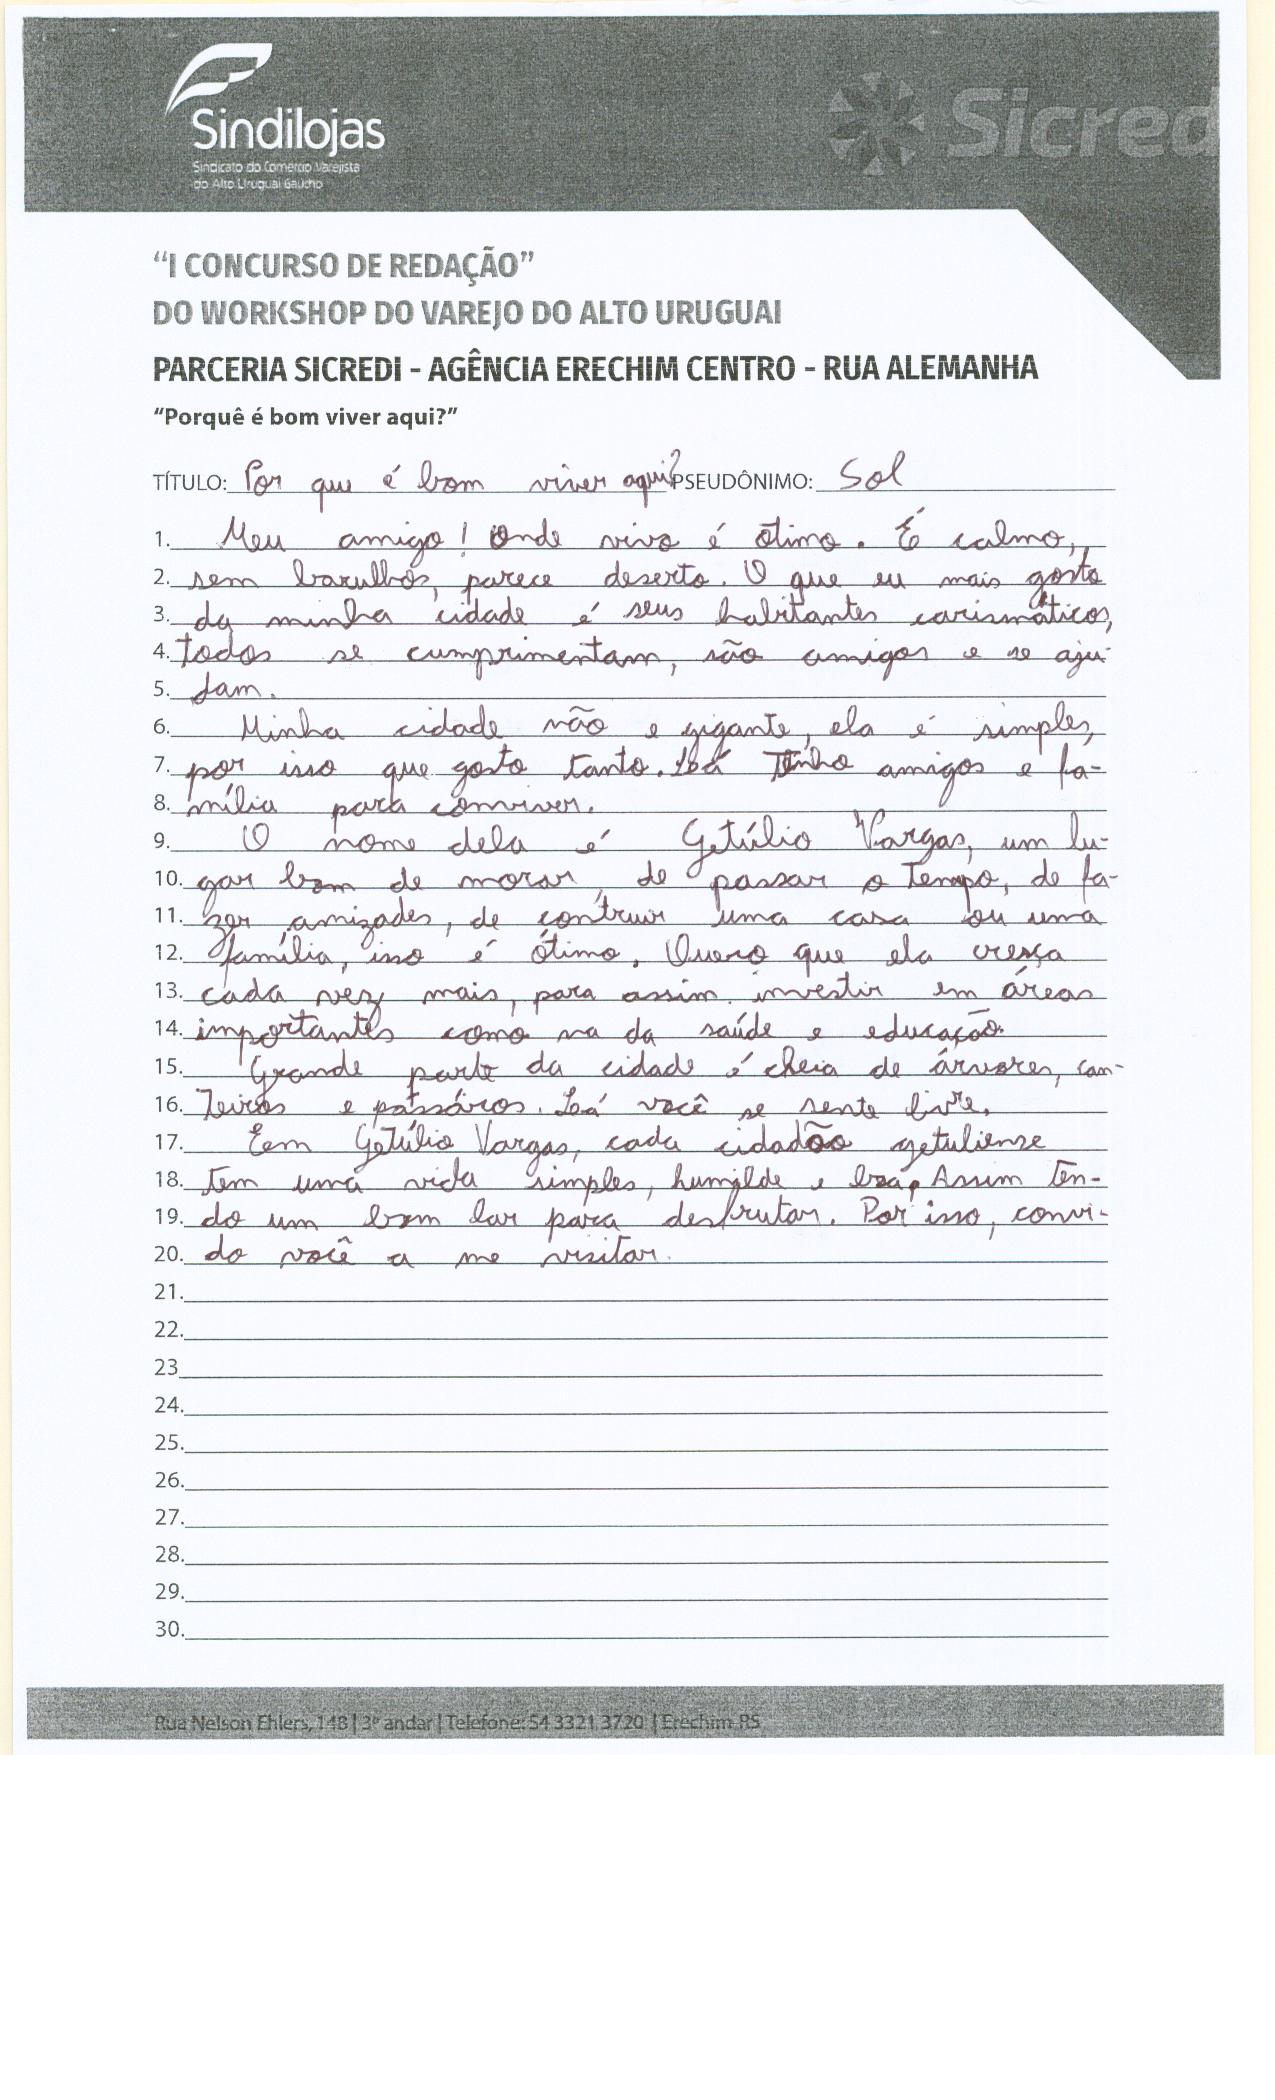 Sindilojas
Sindicato do Comércio Varejista
do Alto Uruguai Gaúcho
Sicred
“I CONCURSO DE REDAÇÃO”
DO WORKSHOP DO VAREJO DO ALTO URUGUAI
PARCERIA SICREDI - AGÊNCIA ERECHIM CENTRO - RUA ALEMANHA
“Porquê é bom viver aqui?”
TÍTULO: Por que é bom viver aqui? PSEUDÔNIMO: Sol
1. Meu amigo! Onde vivo é ótimo. É calmo,
2. sem barulhos, parece deserto. O que eu mais gosto
3. da minha cidade é seus habitantes carismáticos,
4. todos se cumprimentam, são amigos e se aju-
5. dam.
6. Minha cidade não e gigante, ela é simples,
7. por isso que gosto tanto. Lá tenho amigos e fa-
8. mília para conviver.
9. O nome dela é Getúlio Vargas, um lu-
10. gar bom de morar, de passar o tempo, de fa-
11. zer amizades, de contruir uma casa ou uma
12. família, isso é ótimo. Quero que ela cresça
13. cada vez mais, para assim investir em áreas
14. importantes como na da saúde e educação.
15. Grande parte da cidade é cheia de árvores, can-
16. teiros e pássáros. Lá você se sente livre.
17. Eem Getúlio Vargas, cada cidadão getuliense
18. tem uma vida simples, humilde e boa. Assim ten-
19. do um bom lar para desfrutar. Por isso, convi-
20. do você a me visitar.
21.
22.
23
24.
25.
26.
27.
28.
29.
30.
Rua Nelson Ehlers, 148 | 3º andar | Telefone: 54 3321 3720 | Erechim-RS